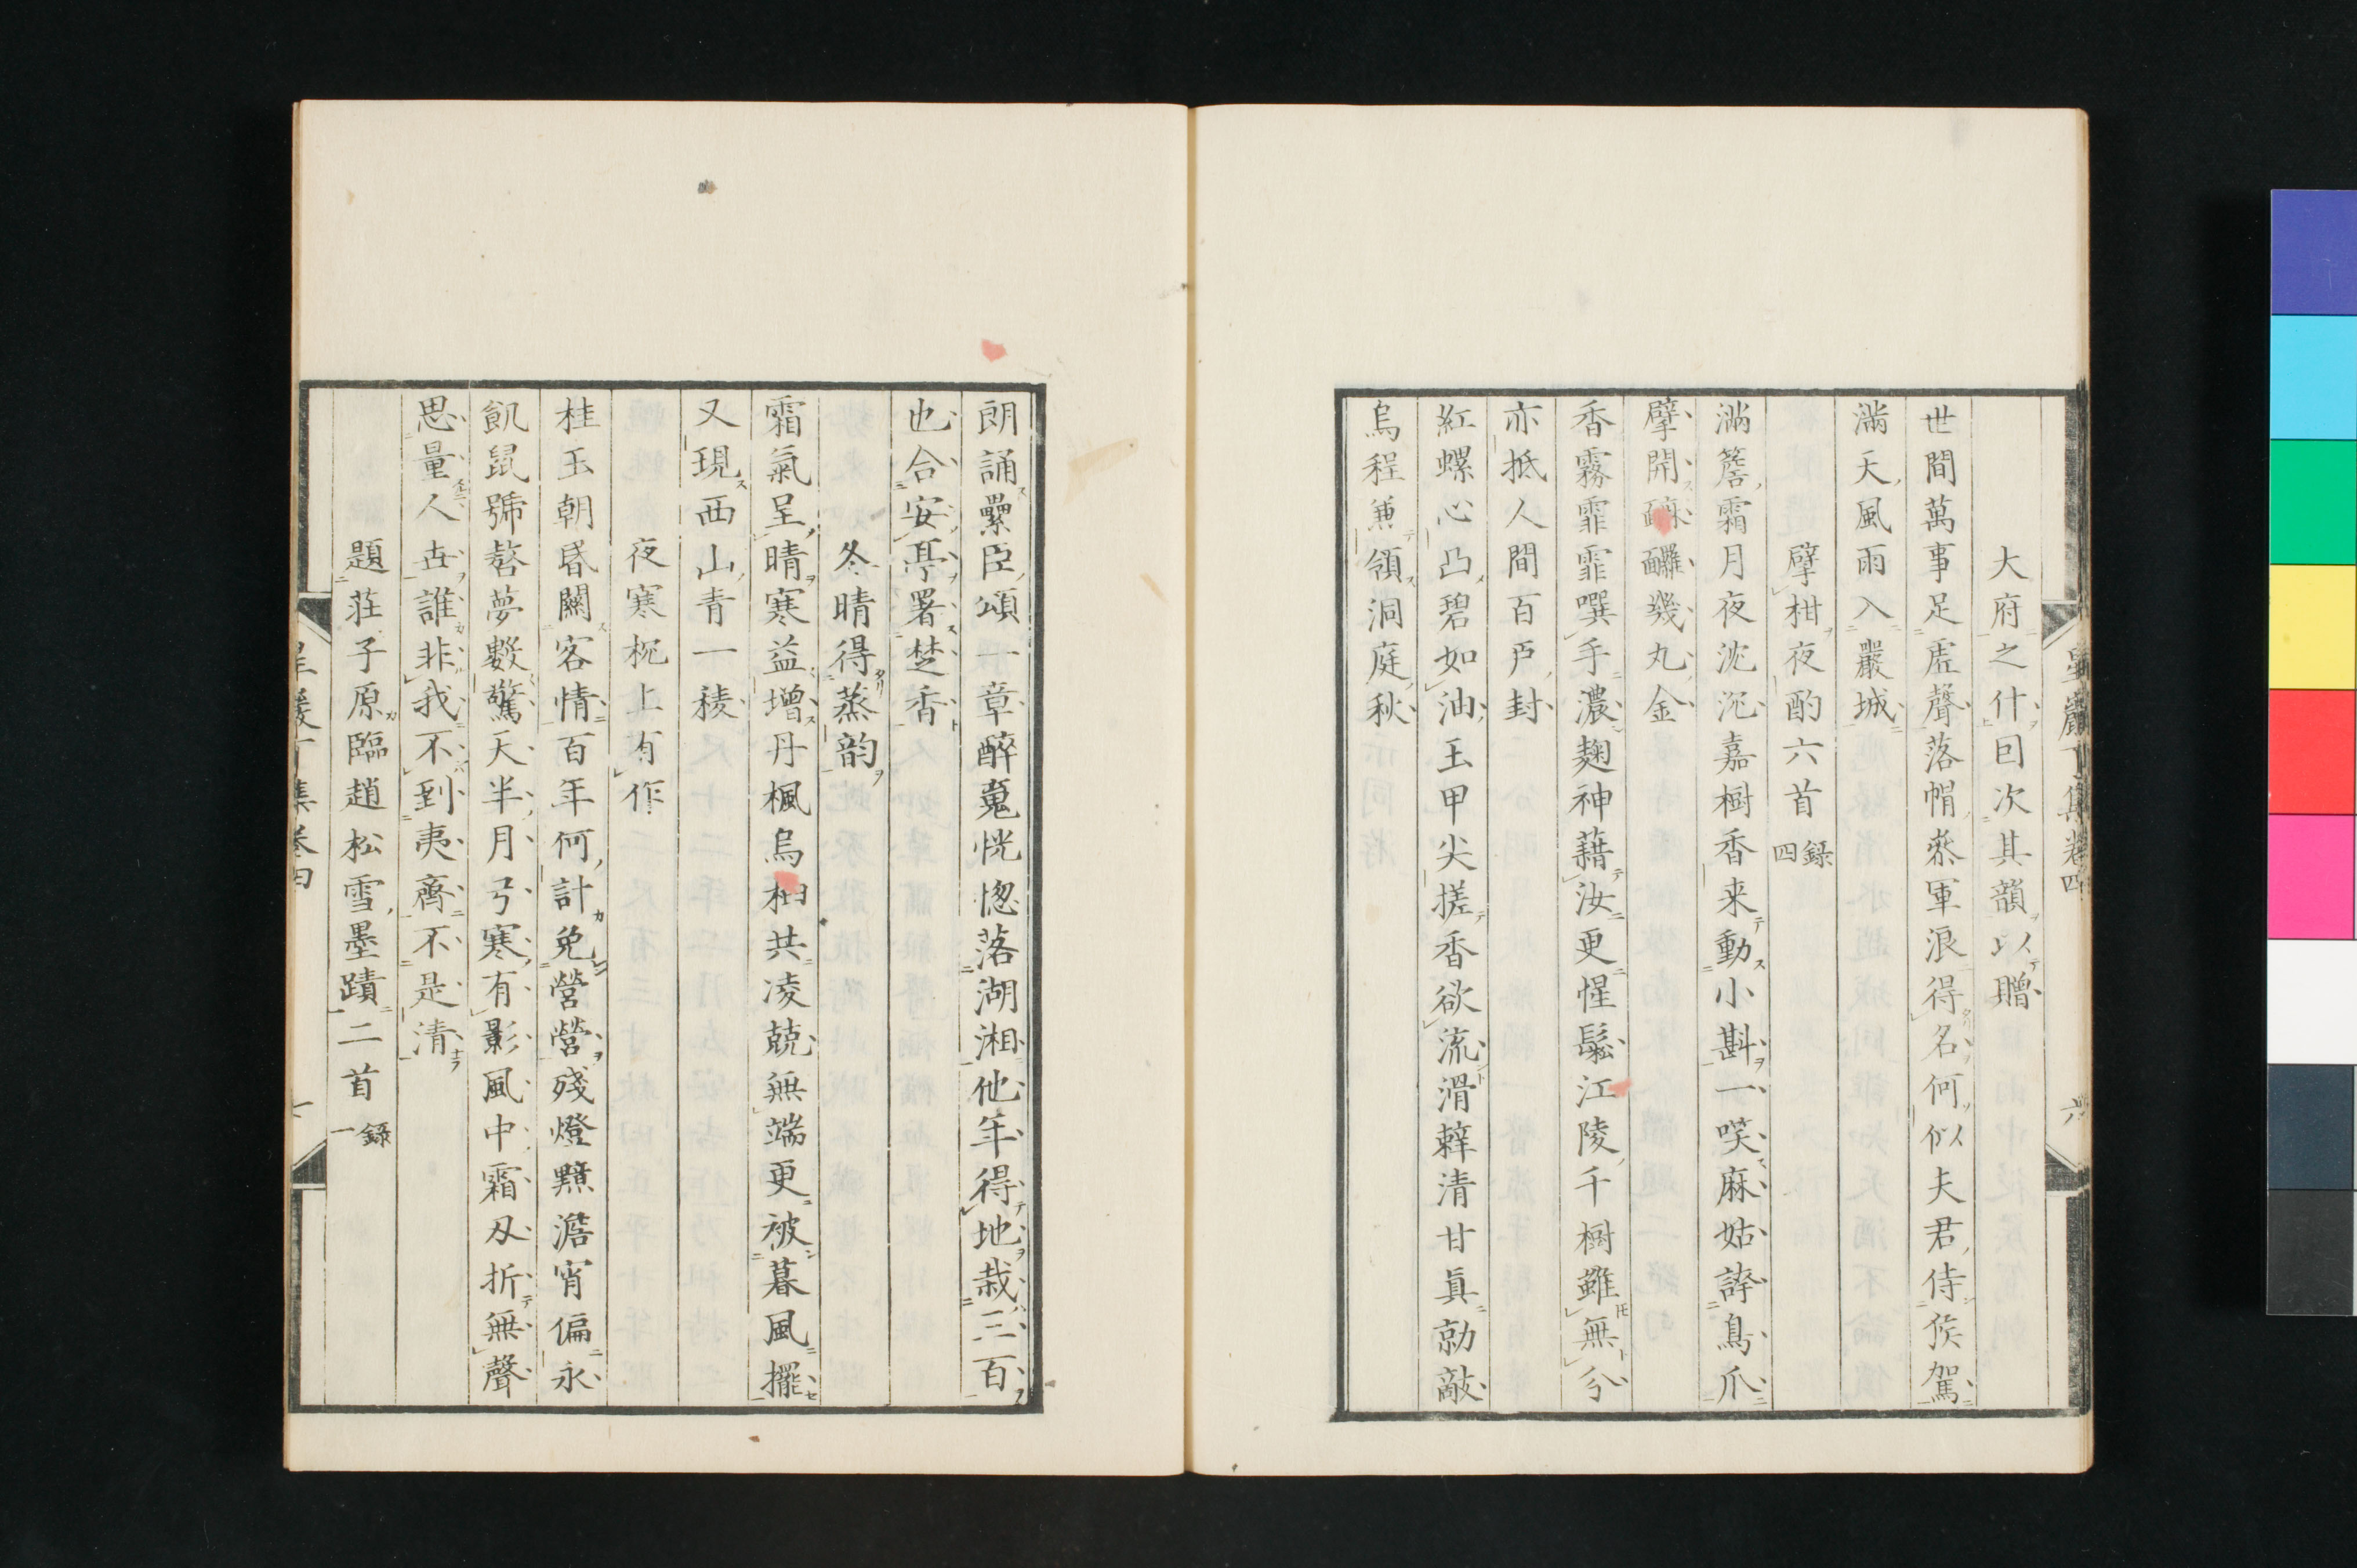 星巖丁集卷四
六
大府之什回次其韻以贈
世間萬事足虛聲落帽參軍浪得名何似夫君侍俟駕
滿天風雨入嚴城
擘柑夜酌六首 錄四
滿簷霜月夜沈沉嘉樹香来動小斟一笑麻姑誇鳥爪
擘開幾丸金
香霧霏霏噀手濃麹神藉汝更惺鬆江陵千樹雖無分
亦抵人間百戸封
紅螺心凸碧如油玉甲尖搓香欲流滑辣清甘真勍敵
烏程兼領洞庭秋
朗誦纍臣頌一章醉䰟恍惚落湖湘他年得地栽三百
也合安亭署楚香
冬晴得蒸韵
霜氣呈晴寒益增丹楓烏桕共凌兢無端更被暮風擺
又現西山青一稜
夜寒枕上有作
桂玉朝昏關客情百年何計免營營殘燈黯澹宵偏永
飢鼠號嗸夢數驚天半月弓寒有影風中霜刄折無聲
思量人世誰非我不到夷齊不是清
題莊子原臨趙松雪墨蹟二首 錄一
星巖丁集卷四
七